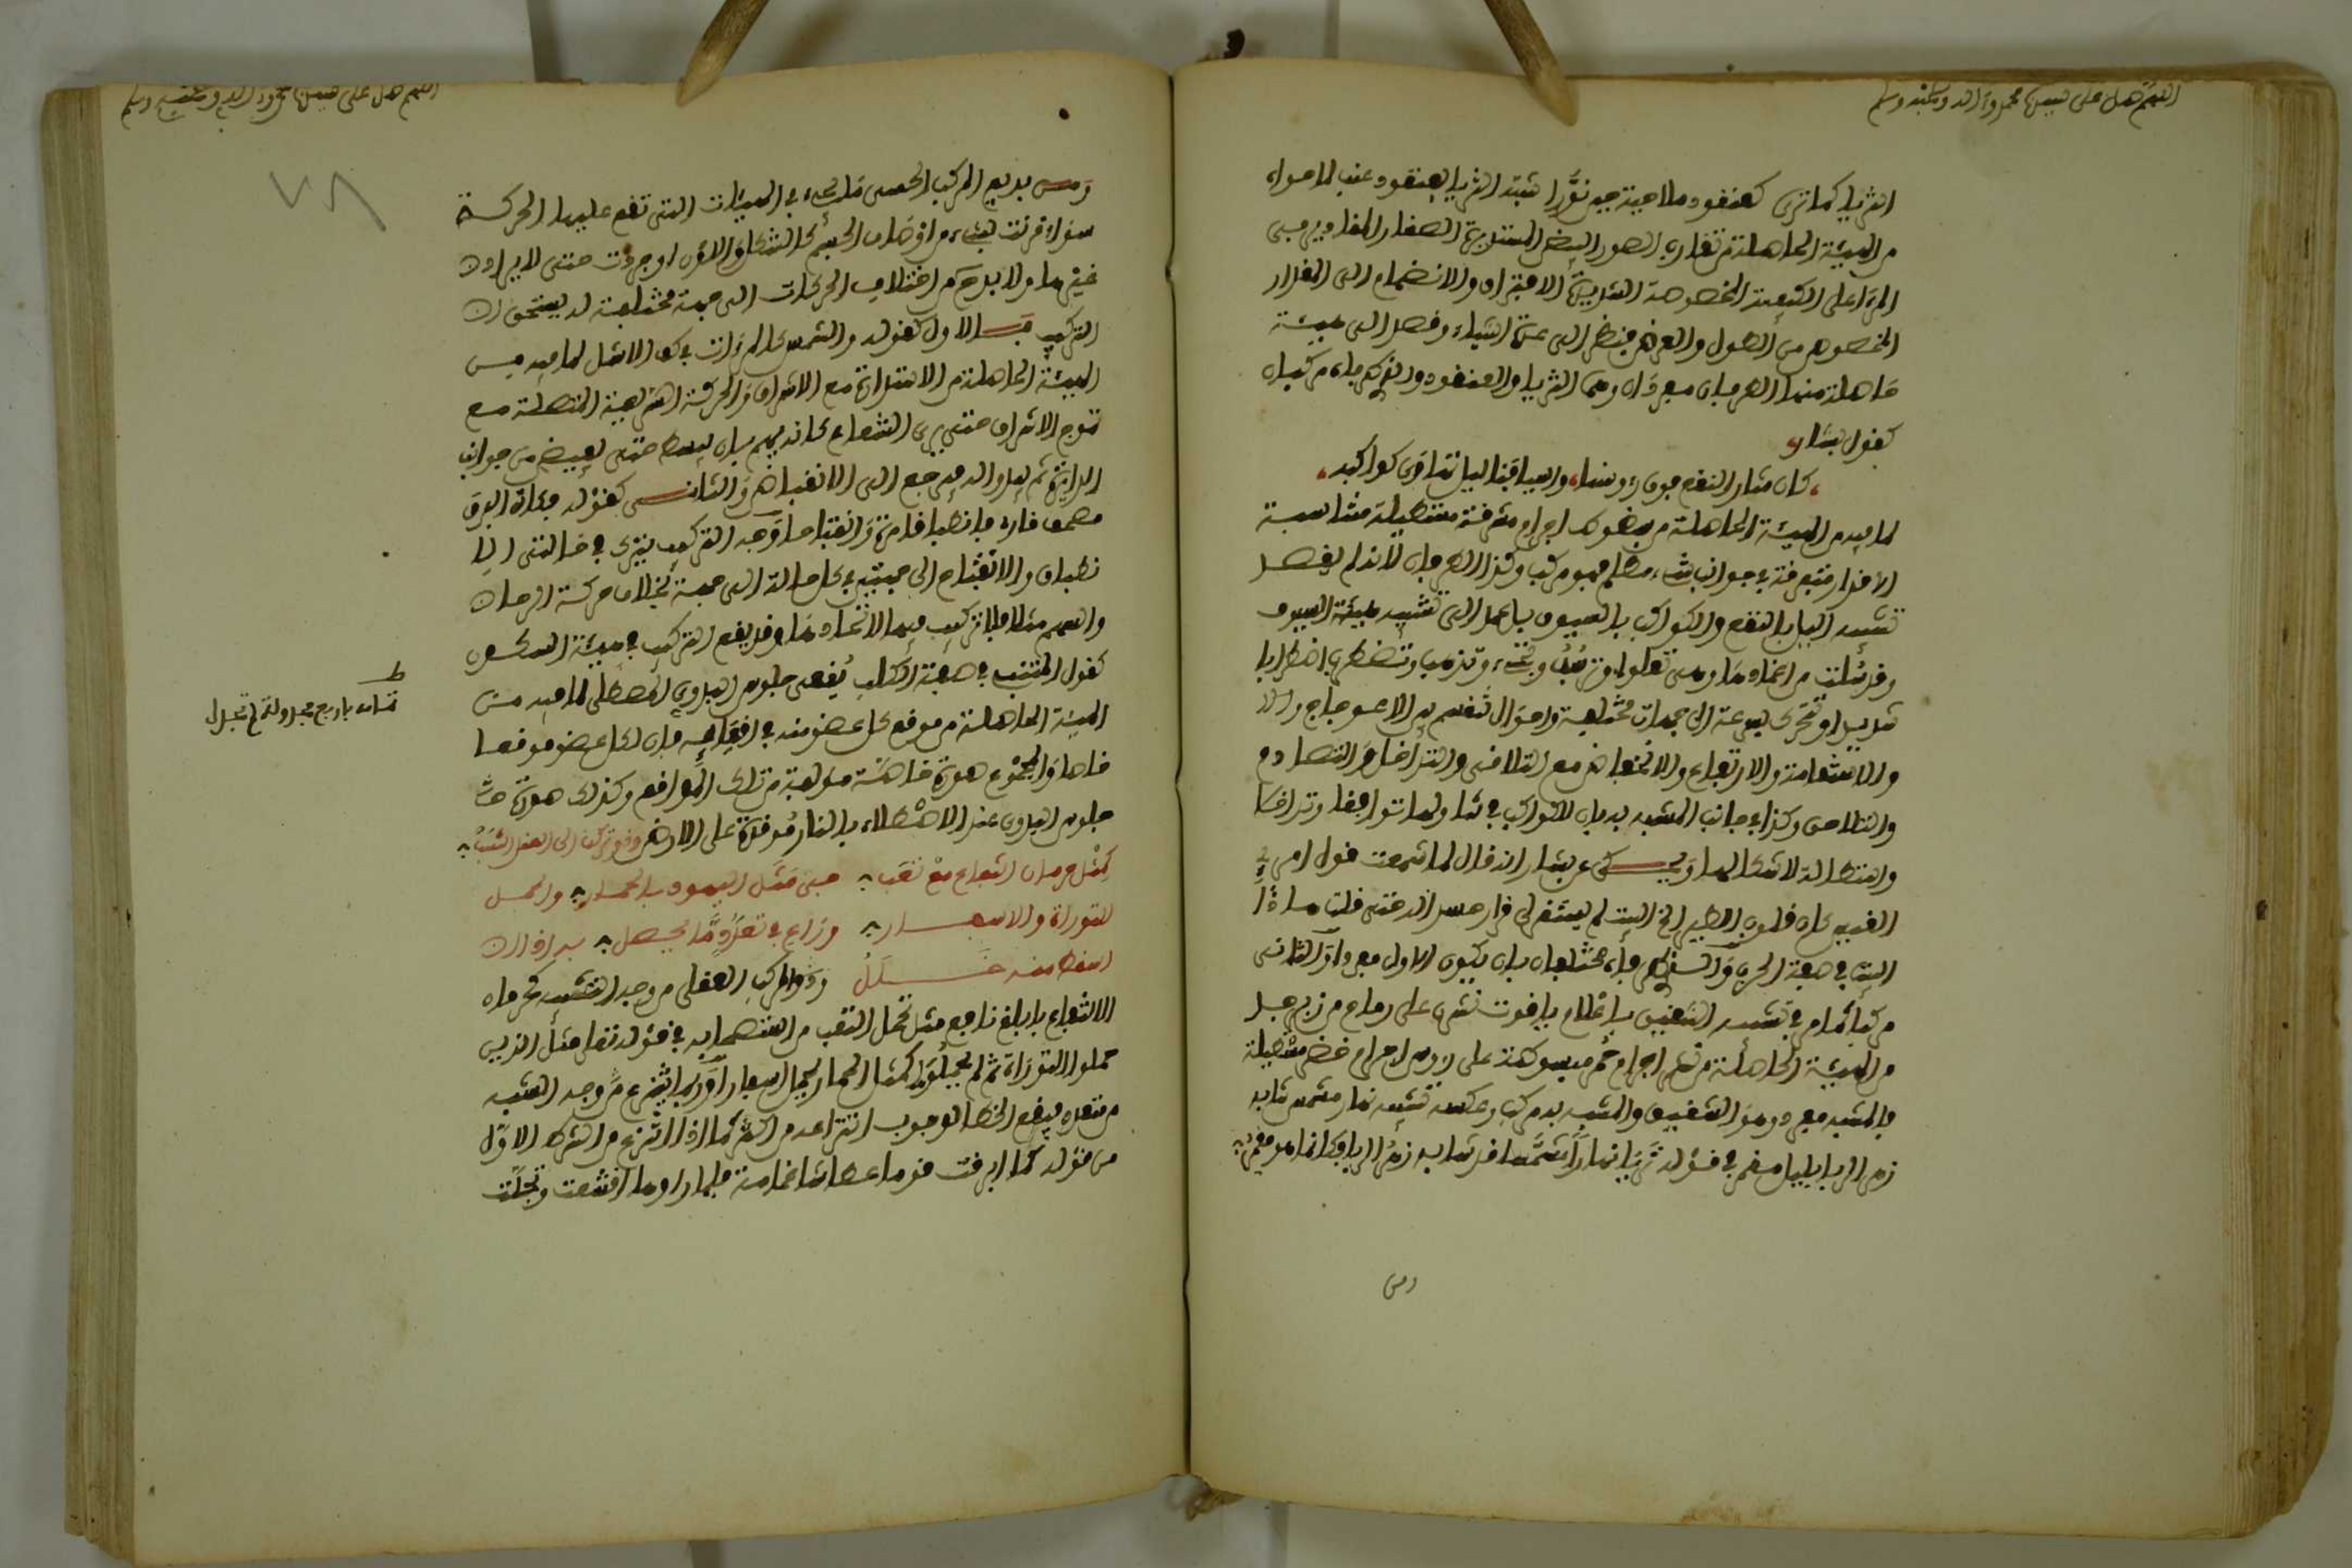 اللهم صل على سيدنا محمد وآله وصحبه وسلم
الثريا كما ترى كعنقود ملاحية حين نوّرا شبه الثريا بعنقود عنب لما حواه
من الهيئة الحاصلة من تقارن الصور البيض المستديرة الصغار المقادير في
المرءا على الكيفية المخصوصة الشديدة الافتراق والانضمام الى المقدار
المخصوص من الطول والعرض فنظر الى عدة اشياء وقصد الى هيئة
حاصلة منها الطرفان مفردان وهما الثريا والعنقود وان طرفاه مركبان
كقول بشار
كان مثار النقع فوق رءوسنا، واسيافنا ليل تهاوى كواكبه،
لما فيه من الهيئة الحاصلة من هوى اجرام مشرقة مستطيلة متناسبة
الاقدار متفرقة في جوانب شىء مظلم فهو مركب وكذا الطرفان لأنه لم يقصد
تشبيه الليل بالنقع والكواكب بالسيوف بل عمد الى تشبيه هيئة السيوف
وقد سلت من اغمادها وهى تعلوا وترسب وتجىء وتذهب وتضطرب اضطرابا
شديدا وتتحرك بسرعة الى جهات مختلفة واحوال تنقسم بين الاعوجاج
والاستقامة والارتفاع والانخفاض مع التلاقى والتداخل والتصادم
والتلاحق وكذا في جانب المشبه به فان للكواكب في تهاويها تواقعا وتداخلا
واستطالة لاشكالها ويحكى عن بشار انه قال لما سمعت قول امرئ
القيس كان قلوب الطير الخ البيت لم يستقر لى قرار حسدا له حتى قلت هاذا
البيت في صفة الحرب والطرفان مختلفان بان يكون الاول مفردا والثانى
مركبا كما مر في تشبيه الشقيق باعلام ياقوت نشرن على رماح من زبرجد
من الهيئة الحاصلة من نشر اجرام حمر مبسوطة على رءوس اجرام خضر مستطيلة
فالمشبه مفرد وهو الشقيق والمشبه به مركب وعكسه تشبيه نهار مشمس شابه
زهر الربا بليل مقمر في قوله تريا نهارا مشمسا قد شابه زهر الربا فكانما هو مقمر
ومن
اللهم صل على سيدنا محمد وآله وصحبه وسلم
ومن بديع المركب الحسى ما يجىء في الهيئات التى تقع عليها الحركة
سواء قرنت بشىء من اوصاف الجسم كالشكل واللون او جردت حتى لا يراد
غيرها ولا بد من اختلاف الحركات الى جهة مختلفة له ليتحقق
التركيب فـالاول كقوله والشمس كالمرءات في كف الاشل لما فيه من
الهيئة الحاصلة من الاستدارة مع الاشراق والحركة السريعة المتصلة مع
تموج الاشراق حتى يرى الشعاع كانه يهم بان ينبسط حتى يفيض من جوانب
الدائرة ثم يبدوا له فيرجع الى الانقباض والثانى كقوله وكان البرق
مصحف قار فانطباقا مرة وانفتاحا وجه التركيب يترى في حالتى الا
نطباق والانفتاح الى جهتين في كل حالة الى جهة بخلاف حركة الرحا
والسهم مثلا فلا تركيب فيها لاتحادها وقد يقع التركيب في هيئة السكون
كقول المتنبى في صفة الكلب يقعى جلوس البدوي المصطلى لما فيه من
الهيئة الحاصلة من موقع كل عضو منه في اقعائه فان لكل عضو موقعا
خاصا والمجموع صورة خاصة مؤلفة من تلك المواقع وكذلك صورة
جلوس البدوى عند الاصطلاء بالنار موقدة على الارض وذو تركيب الى العقل
كمثل حرمان انتفاع مع تعب في مثل اليهود بالحمار والحمل
للتوراة والاسفار وراع في تعدد ما يحصل به اذ ان
اسقاط منه خلل وذوا المركب العقلى من وجه التشبيه كحرمان
الانتفاع بابلغ نافع مثل تحمل التعب من استصحابه في قوله تعالى مثل الذين
حملوا التوراة ثم لم يحملوها كمثل الحمار يحمل اسفارا وربما ينتزع من وجه الشبه
من متعدد فيقع الخطا لوجوب انتزاعه من اكثر كما اذا انتزع من الشرط الاول
من قوله كما ابرقت قوما عطاشا غمامة فلما راوها اقشعت وتجلت